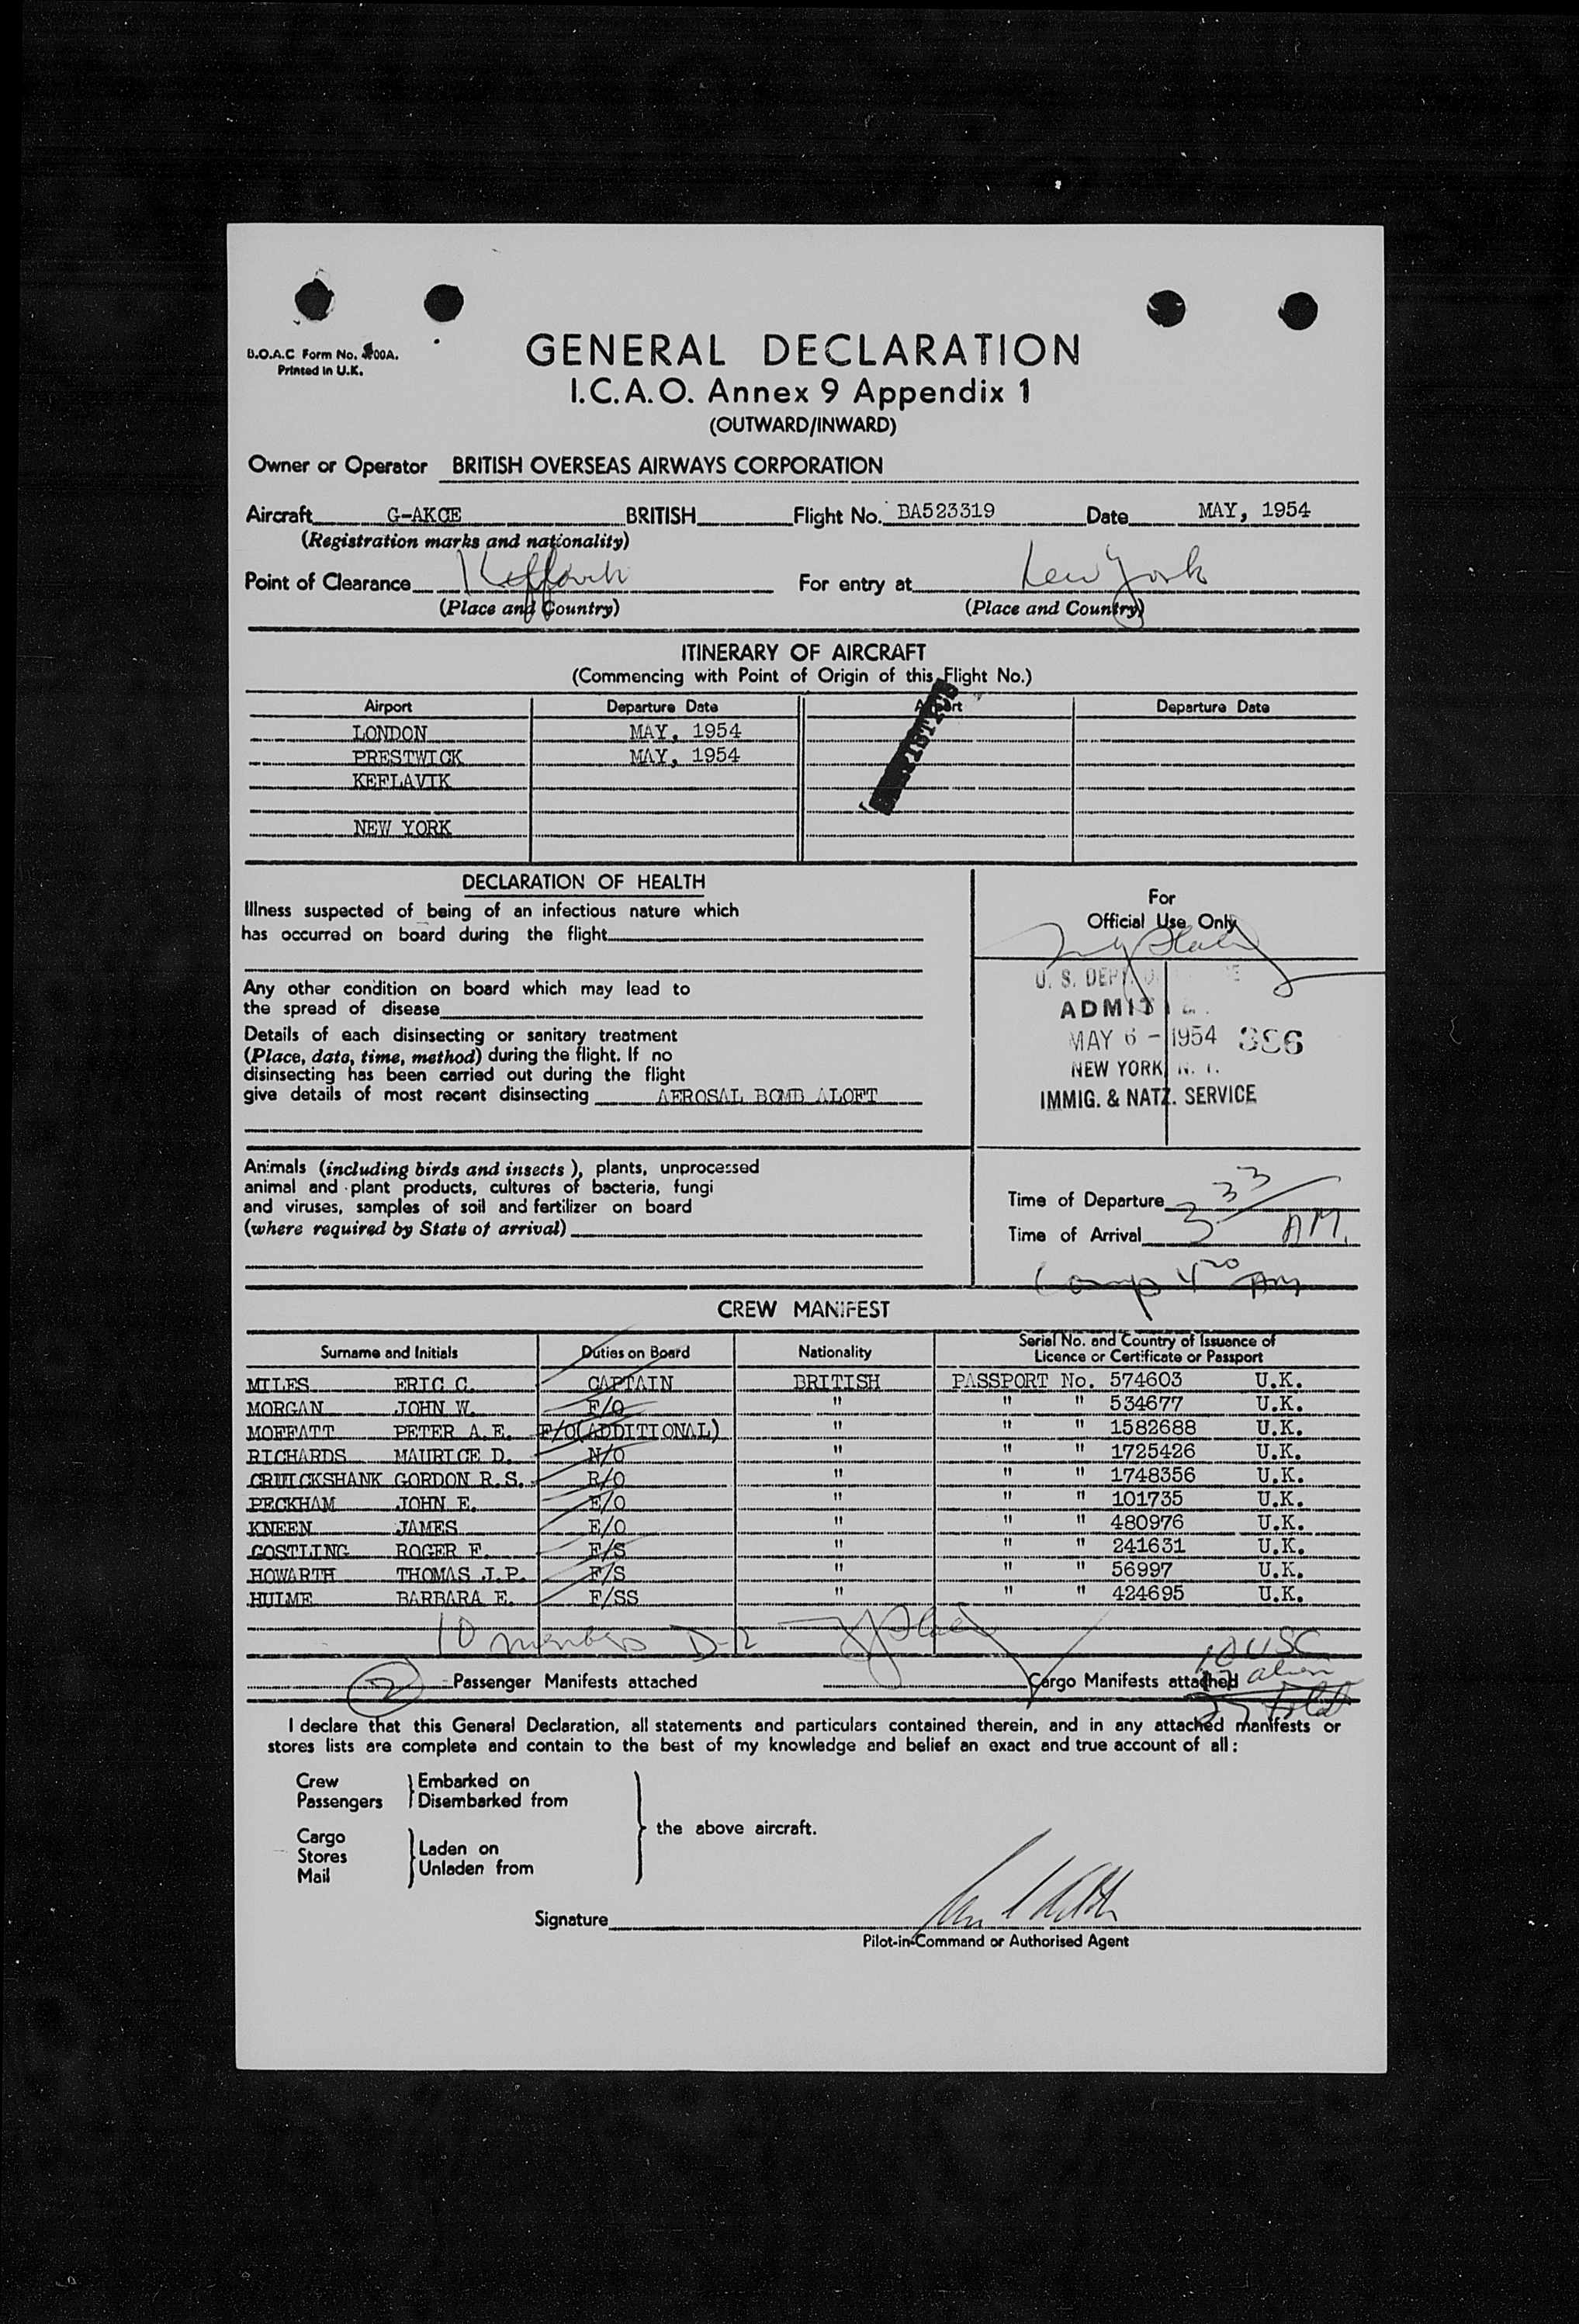 B.O.A.C Form No. 00A.
Printed in U.K.
GENERAL DECLARATION
I.C.A.O. Annex 9 Appendix 1
(OUTWARD/INWARD)
Owner or Operator BRITISH OVERSEAS AIRWAYS CORPORATION
Aircraft G-AKCE BRITISH Flight No. BA523319 Date MAY, 1954
(Registration marks and nationality)
Point of Clearance Keflavik For entry at New York
(Place and Country) (Place and Country)
ITINERARY OF AIRCRAFT
(Commencing with Point of Origin of this Flight No.)
Airport Departure Date Airport Departure Date
LONDON MAY, 1954
PRESTWICK MAY, 1954
KEFLAVIK
NEW YORK
DECLARATION OF HEALTH
Illness suspected of being of an infectious nature which
has occurred on board during the flight
Any other condition on board which may lead to
the spread of disease
Details of each disinsecting or sanitary treatment
(Place, date, time, method) during the flight. If no
disinsecting has been carried out during the flight
give details of most recent disinsecting AEROSAL BOMB ALOFT
For
Official Use Only
U. S. DEPT.
ADMIT
MAY 6 - 1954 386
NEW YORK, N. Y.
IMMIG. & NATZ. SERVICE
Animals (including birds and insects), plants, unprocessed
animal and plant products, cultures of bacteria, fungi
and viruses, samples of soil and fertilizer on board
(where required by State of arrival)
Time of Departure
Time of Arrival 3 33 AM.
Comp 4 20 AM
CREW MANIFEST
Surname and Initials Duties on Board Nationality Serial No. and Country of Issuance of
Licence or Certificate or Passport
MILES ERIC C. CAPTAIN BRITISH PASSPORT No. 574603 U.K.
MORGAN JOHN W. F/O " " " 534677 U.K.
MOFFATT PETER A.E. F/O(ADDITIONAL) " " " 1582688 U.K.
RICHARDS MAURICE D. N/O " " " 1725426 U.K.
CRUICKSHANK GORDON R.S. R/O " " " 1748356 U.K.
PECKHAM JOHN E. E/O " " " 101735 U.K.
KNEEN JAMES E/O " " " 480976 U.K.
GOSTLING ROGER F. F/S " " " 241631 U.K.
HOWARTH THOMAS J.P. F/S " " " 56997 U.K.
HULME BARBARA E. F/SS " " " 424695 U.K.
10 members D-2
2 Passenger Manifests attached Cargo Manifests attached
10 USC
alien
I declare that this General Declaration, all statements and particulars contained therein, and in any attached manifests or
stores lists are complete and contain to the best of my knowledge and belief an exact and true account of all:
Crew Embarked on
Passengers Disembarked from
the above aircraft.
Cargo
Stores Laden on
Mail Unladen from
Signature
Pilot-in-Command or Authorised Agent